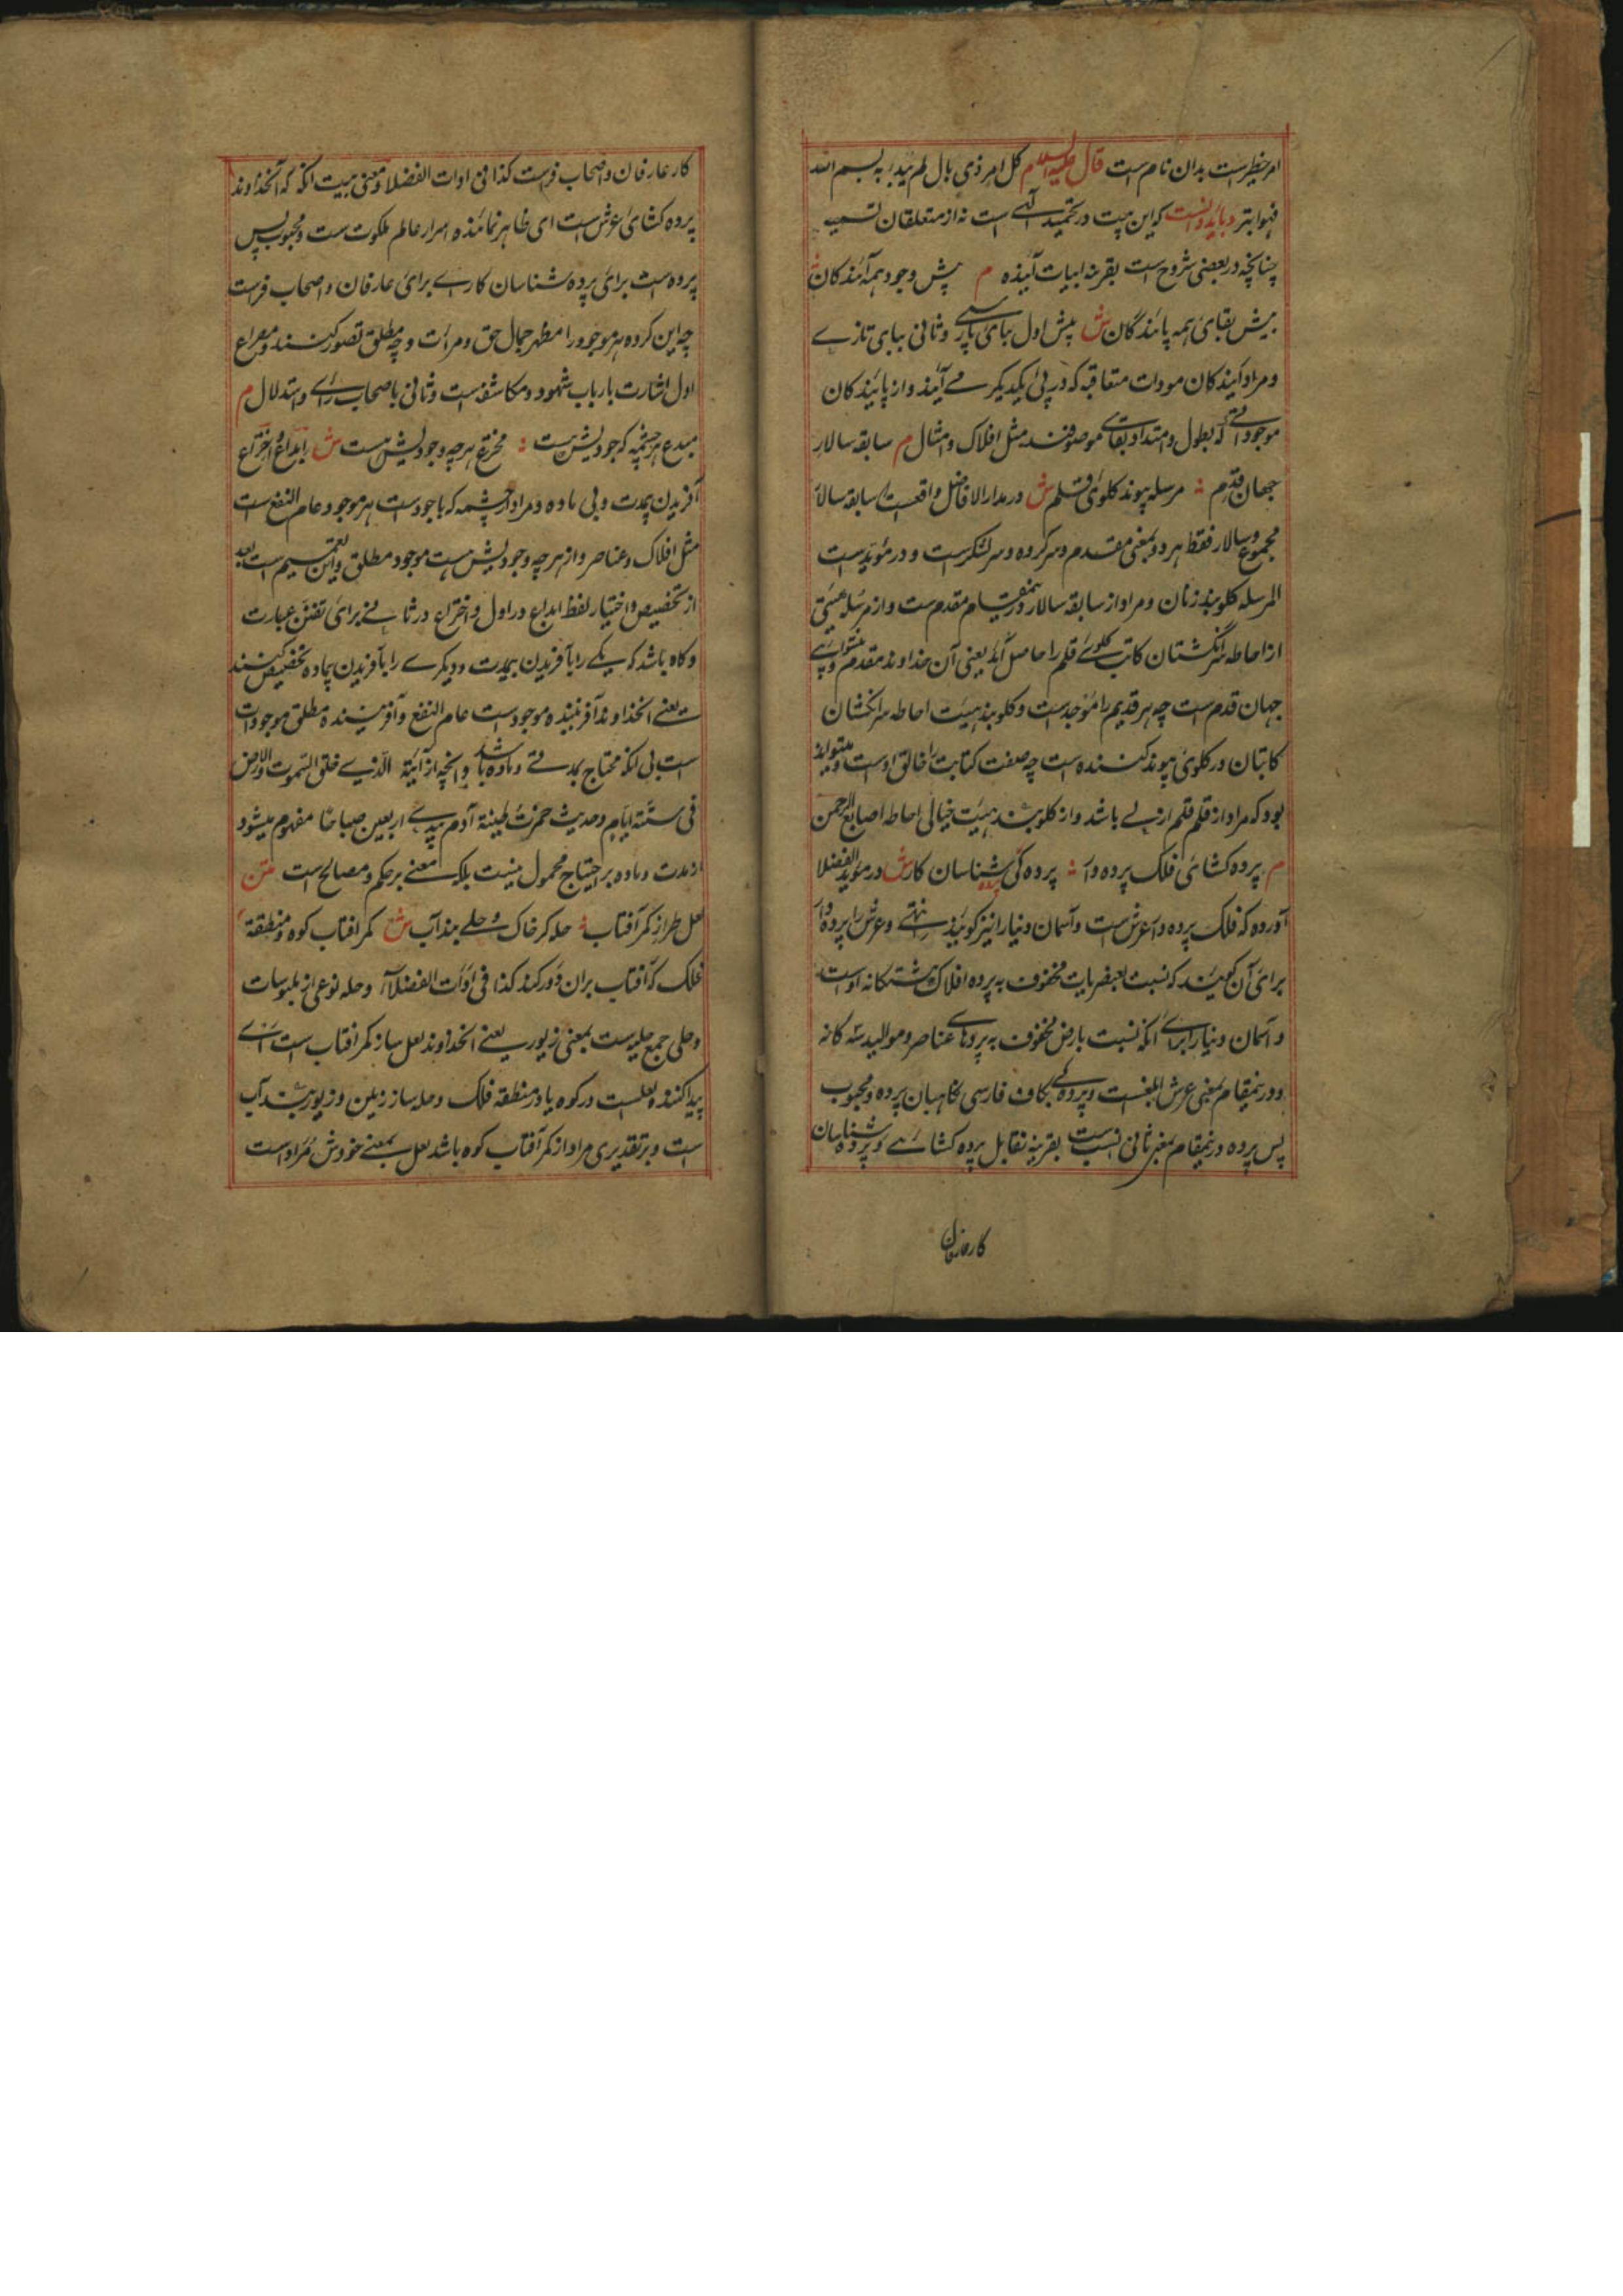 امر خطیرست بدان نام است قال علیه السلام کل امر ذی بال لم یبدا به بسم الله
فهو ابتر و باید دانست که این بیت در تحمید الهی است نه از متعلقات تسمیه
چنانچه در بعضی شروح است بقرینه ابیات آینده م پیش وجود همه آیندکان
بیش بقای همه پایندگان ش پیش اول ببای پارسی و ثانی ببای تازے
و مراد از آیندکان موجودات متعاقبه که در پی یکدیکر مے آیند و از پایندکان
موجوداتے که بطول و امتداد بقای موصوفند مثل افلاک و امثال م سابقه سالار
جهان قدم مرسله پیوند کلوی قلم ش در مدار الافاضل واقعست سابقه سالار
مجموع و سالار فقط هر دو بمعنی مقدم و سرکروه و سر لشکرست و در موید است
المرسله کلوبند زنان و مراد از سابقه سالار درینمقام مقدم ست و از مرسله هیئتی
از احاطه سر انگشتان کاتب کلوئے قلم را حاصل آید یعنی آن خداوند مقدم و پیشوای
جهان قدم ست چه هر قدیم را موجد ست و کلوبند هیئت احاطه سر انکشتان
کاتبان در کلوی پیوند کننده است چه صفت کتابت را خالق اوست و میتواند
بود که مراد از قلم قلم ازلے باشد و از کلوبند هیئت خیالی احاطه اصابع الرحمن
م پرده کشائی فلک پرده دار پرده کی پرده شناسان کار ش در موید الفضلا
آورده که فلک پرده دار عرش است و آسمان دنیا را نیز کویند انتهے و عرش را پرده دار
برای آن کویند که نسبت بعنصریات محفوف به پرده افلاک هشتکانه اوست
و آسمان دنیا را برای آنکه نسبت بارض محفوف به پردهای عناصر و موالید سه کانه
و درینمقام بمعنی عرش ابلغست و پرده کی بکاف فارسی نکاهبان پرده و محبوب
پس پرده درینمقام بمعنی ثانی انسب است بقرینه تقابل پرده کشائے و پرده شناسان
کارعارفان
کار عارفان و اصحاب فراست کذا فی ادات الفضلا و معنی بیت آنکه که آنخداوند
پرده کشای عرش است ای ظاهر نمائنده اسرار عالم ملکوت ست و محبوب پس
پرده است برای پرده شناسان کارے برای عارفان و اصحاب فراست
چه این کروه هر موجود را مظهر جمال حق و مرآت وجه مطلق تصور کنند و مصراع
اول اشارت بارباب شهود و مکاشفه است و ثانی باصحاب رائے و استدلال م
مبدع هر چشمه که جودیش هست مخترع هر چه وجودیش هست ش ابداع و اختراع
آفریدن بیمدت و بی ماده و مراد از چشمه که با جود است هر موجود عام النفع است
مثل افلاک و عناصر و از هر چه وجودیش هست موجود مطلق و این تعمیم است بعد
از تخصیص و اختیار لفظ ابداع در اول و اختراع در ثانے برای تفنن عبارت
و کاه باشد که یکے را بآفریدن بیمدت و دیکرے را بآفریدن بیماده تخصیص کنند
یعنے آنخداوند آفریننده موجود است عام النفع و آفریننده مطلق موجودات
است بی آنکه محتاج بمدتے و ماده باشد و آنچه از آیة الذے خلق السموت والارض
فی ستة ایام و حدیث خمرت طینة آدم بیدے اربعین صباحا مفهوم میشود
از مدت و ماده بر احتیاج محمول نیست بلکه معنے بر حکم و مصالح است متن
لعل طراز کمر آفتاب حله کر خاک و حلے بند آب ش کمر افتاب کوه و منطقه
فلک که آفتاب بران دور کند کذا فی ادات الفضلا و حله نوعی از ملبوسات
و حلی جمع حلیه ست بمعنی زیور یعنے آنخداوند لعل ساز کمر افتاب است اے
پیدا کننده لعلست در کوه یا در منطقه فلک و حله ساز زمین و زیور بند آب
است و بر تقدیری مراد از کمر آفتاب کوه باشد لعل بمعنے خودش مراد است